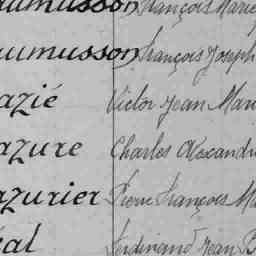 aumusson François Marie
aumusson François Joseph
azié Victor Jean Mari
azure Charles Alexandre
azurier Pierre François Ma
al Ferdinand Jean B